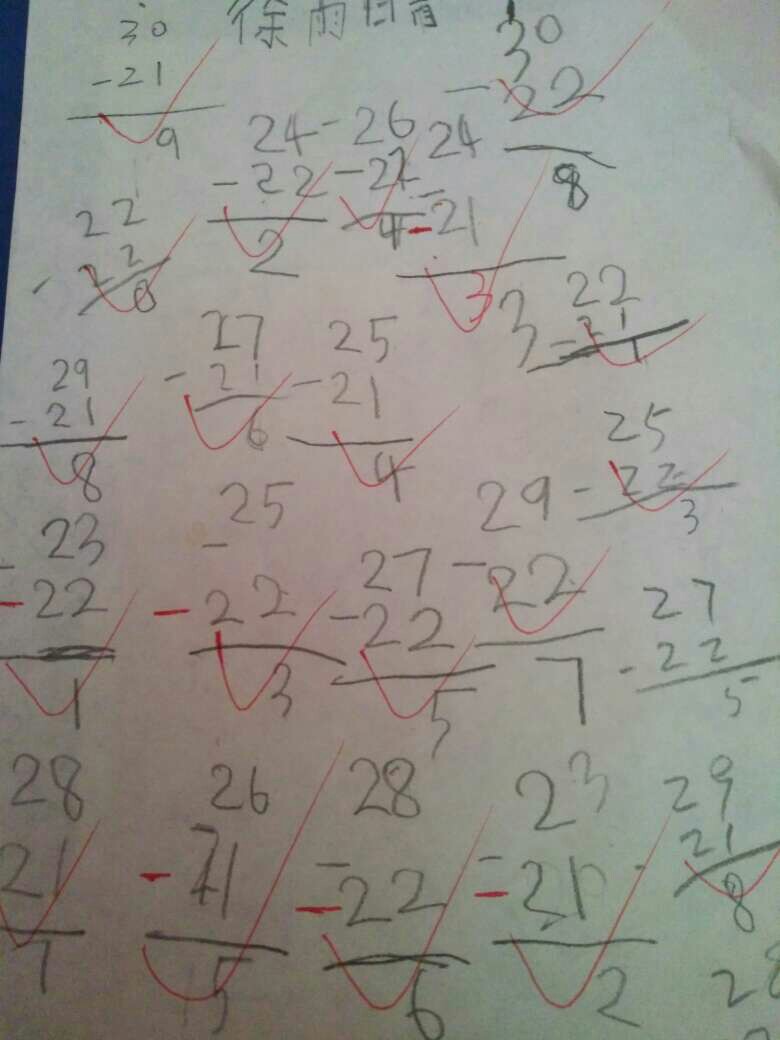 徐雨晴
30
-21
9
30
-22
8
24
-22
2
26
-22
4
24
-21
3
22
-22
0
3
22
-21
1
27
-21
6
25
-21
4
29
-21
8
25
-22
3
23
-22
1
25
-22
3
27
-22
5
29
-22
7
27
-22
5
28
21
7
26
-21
5
28
-22
6
23
-21
2
29
-21
8
28